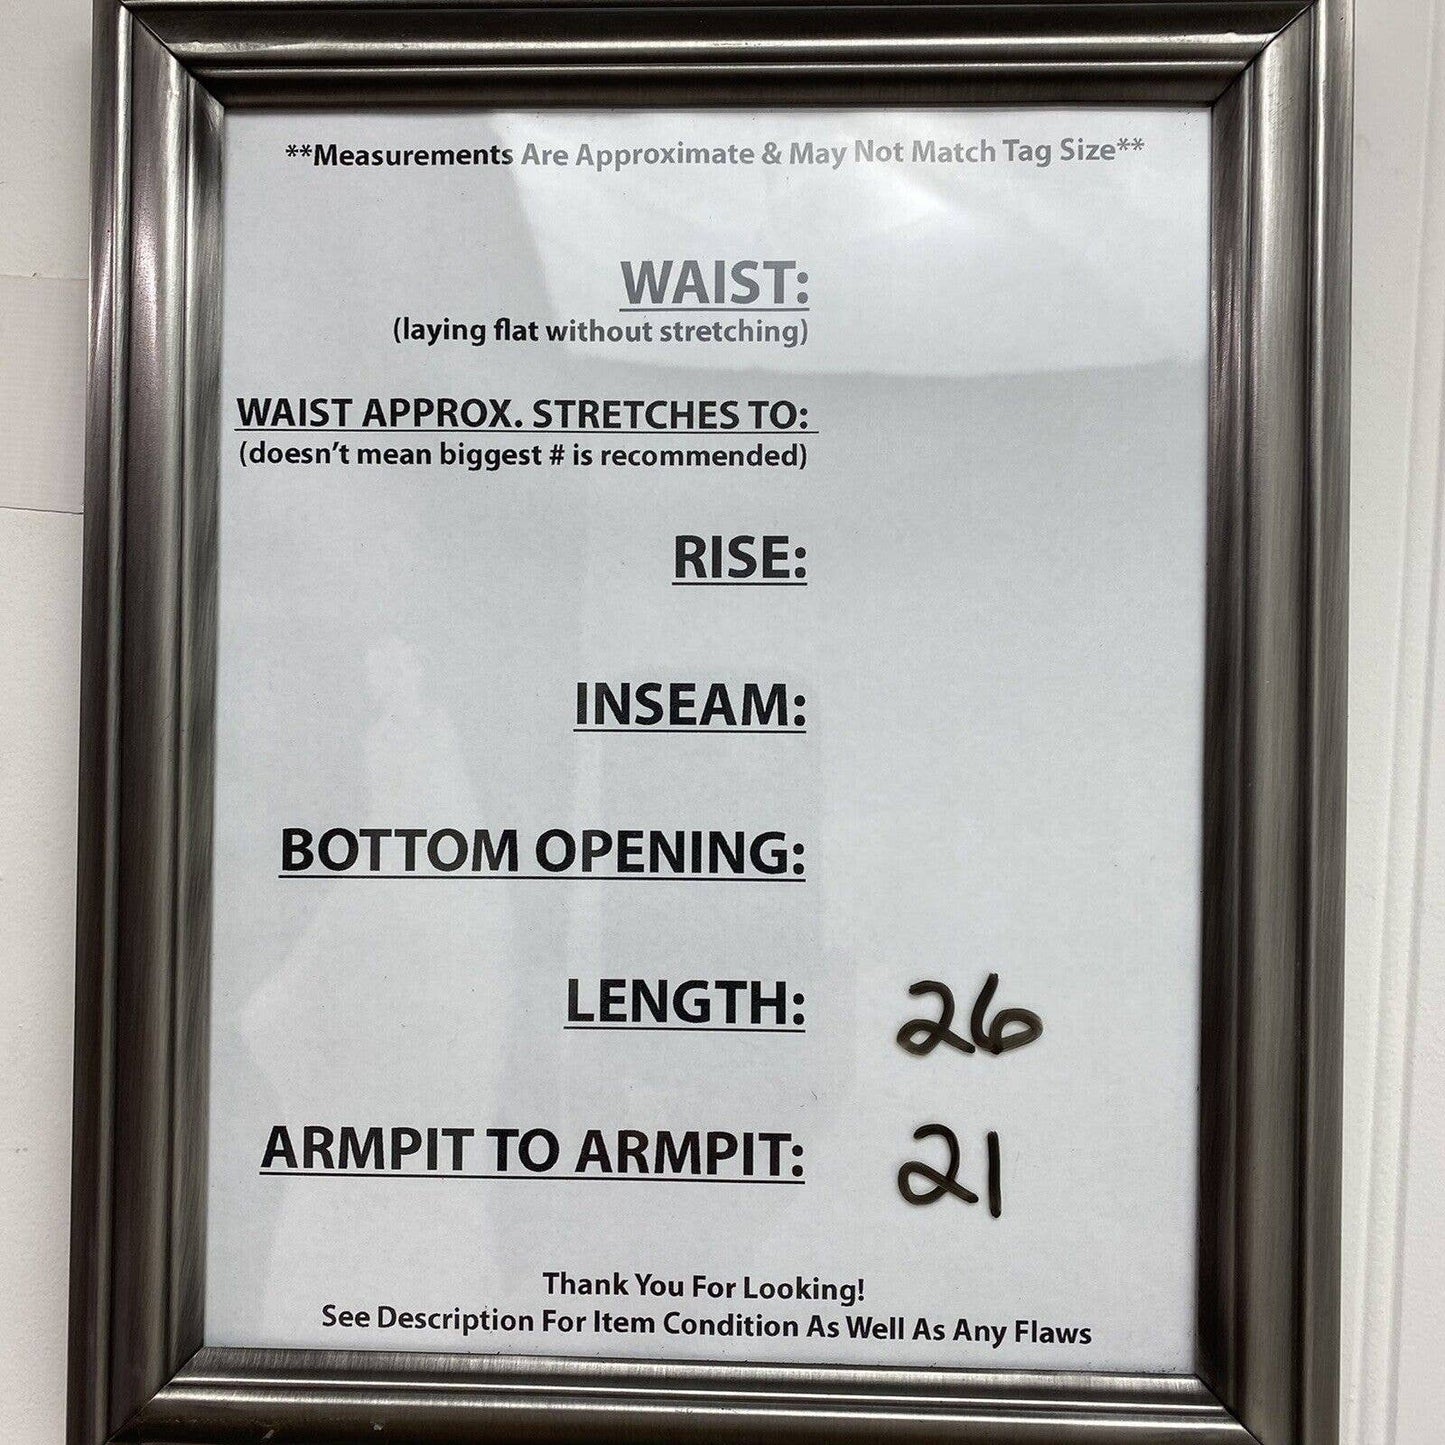 **Measurements Are Approximate & May Not Match Tag Size**
WAIST:
(laying flat without stretching)
WAIST APPROX. STRETCHES TO:
(doesn't mean biggest # is recommended)
RISE:
INSEAM:
BOTTOM OPENING:
LENGTH: 26
ARMPIT TO ARMPIT: 21
Thank You For Looking!
See Description For Item Condition As Well As Any Flaws